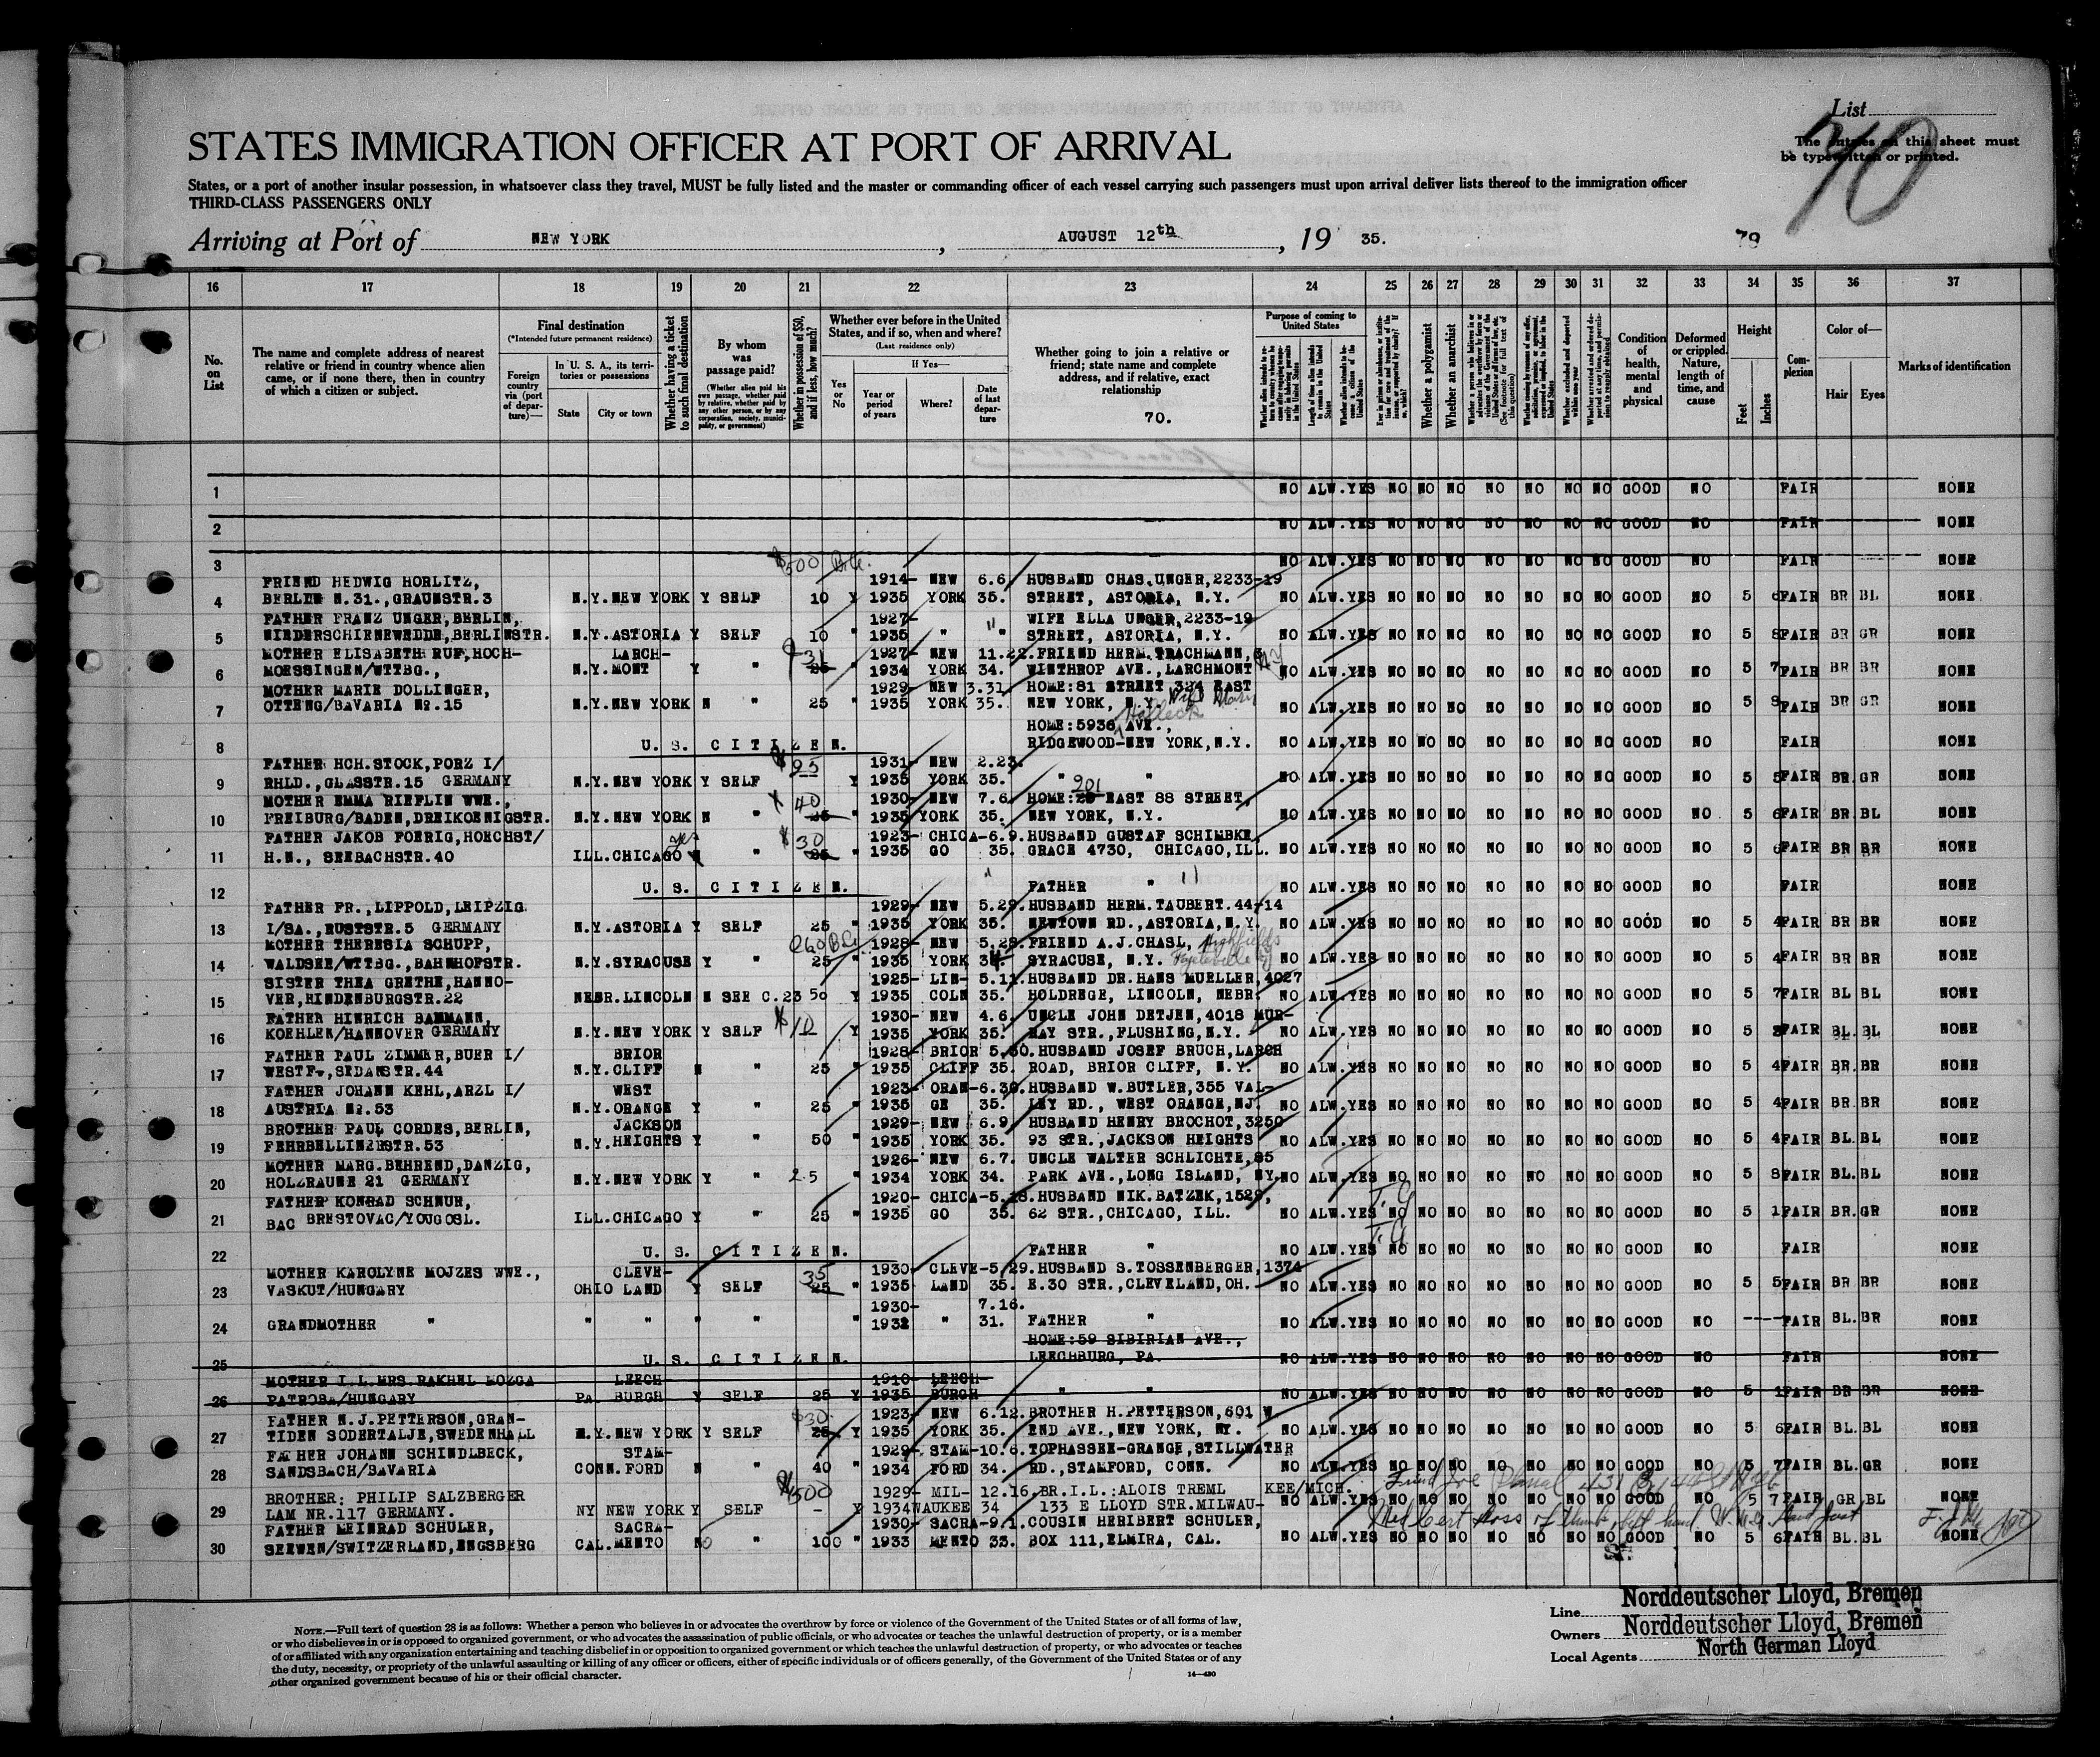 List
70
The entries on this sheet must
be typewritten or printed.
STATES IMMIGRATION OFFICER AT PORT OF ARRIVAL
States, or a port of another insular possession, in whatsoever class they travel, MUST be fully listed and the master or commanding officer of each vessel carrying such passengers must upon arrival deliver lists thereof to the immigration officer
THIRD-CLASS PASSENGERS ONLY
Arriving at Port of NEW YORK, AUGUST 12th, 19 35.
79
16 17 18 19 20 21 22 23 24 25 26 27 28 29 30 31 32 33 34 35 36 37
No. on List
The name and complete address of nearest relative or friend in country whence alien came, or if none there, then in country of which a citizen or subject.
Final destination
(*Intended future permanent residence)
Foreign country via (port of departure)—
In U. S. A., its territories or possessions
State
City or town
Whether having a ticket to such final destination
By whom was passage paid?
(Whether alien paid his own passage, whether paid by relative, whether paid by any other person, or by any corporation, society, municipality, or government)
Whether in possession of $50, and if less, how much?
Whether ever before in the United States, and if so, when and where?
(Last residence only)
Yes or No
If Yes—
Year or period of years
Where?
Date of last departure
Whether going to join a relative or friend; state name and complete address, and if relative, exact relationship
70.
Purpose of coming to United States
Length of time alien intends to remain in the United States
Whether alien intends to become a citizen of the United States
Whether a polygamist
Whether an anarchist
Condition of health, mental and physical
Deformed or crippled. Nature, length of time, and cause
Height
Feet
Inches
Complexion
Color of—
Hair
Eyes
Marks of identification
1 NO ALW. YES NO NO NO NO NO NO NO GOOD NO FAIR NONE
2 NO ALW. YES NO NO NO NO NO NO NO GOOD NO FAIR NONE
3 NO ALW. YES NO NO NO NO NO NO NO GOOD NO FAIR NONE
$500
FRIEND HEDWIG HORLITZ, 1914- NEW 6.6. HUSBAND CHAS. UNGER, 2233-19
4 BERLIN N.31., GRAUNSTR.3 N.Y. NEW YORK Y SELF 10 Y 1935 YORK 35. STREET, ASTORIA, N.Y. NO ALW. YES NO NO NO NO NO NO NO GOOD NO 5 FAIR BR BL NONE
FATHER FRANZ UNGER, BERLIN, 1927- " WIFE ELLA UNGER, 2233-19
5 NIEDERSCHIENEWEDDE, BERLINSTR. N.Y. ASTORIA Y SELF 10 " 1935 " " STREET, ASTORIA, N.Y. NO ALW. YES NO NO NO NO NO NO NO GOOD NO 5 8 FAIR BR GR NONE
MOTHER ELISABETH RUF, HOCH- LARCH- 31 1927- NEW 11.22. FRIEND HERM. TRACHMANN,
6 MOESSINGEN/WTTBG., N.Y. MONT Y " 25 " 1934 YORK 34. WINTHROP AVE., LARCHMONT NY NO ALW. YES NO NO NO NO NO NO NO GOOD NO 5 7 FAIR BR BR NONE
MOTHER MARIE DOLLINGER, 1929- NEW 3.31. HOME: 81 STREET 324 EAST
7 OTTENG/BAVARIA No.15 N.Y. NEW YORK N " 25 " 1935 YORK 35. NEW YORK, N.Y. Wife NO ALW. YES NO NO NO NO NO NO NO GOOD NO 5 8 FAIR BR GR NONE
HOME: 5936 AVE.,
8 U. S. CITIZEN. RIDGEWOOD-NEW YORK, N.Y. NO ALW. YES NO NO NO NO NO NO NO GOOD NO FAIR NONE
FATHER HCH. STOCK, PORZ I/ 25 1931- NEW 2.23.
9 RHLD., GLASSTR.15 GERMANY N.Y. NEW YORK Y SELF Y 1935 YORK 35. " " NO ALW. YES NO NO NO NO NO NO NO GOOD NO 5 5 FAIR BR. GR NONE
MOTHER EMMA RIEFLIN WWE., 40 1930- NEW 7.6. HOME: 201 EAST 88 STREET,
10 FREIBURG/BADEN, DREIKOENIGSTR. N.Y. NEW YORK N " 25 " 1935 YORK 35. NEW YORK, N.Y. NO ALW. YES NO NO NO NO NO NO NO GOOD NO 5 6 FAIR BR. BL NONE
FATHER JAKOB FOERIG, HOECHST/ yes $30 1923- CHICA- 6.9. HUSBAND GUSTAF SCHIMBKE
11 H.N., SEEBACHSTR.40 ILL. CHICAGO N " 25 " 1935 GO 35. GRACE 4730, CHICAGO, ILL. NO ALW. YES NO NO NO NO NO NO NO GOOD NO 5 FAIR BR BR NONE
12 U. S. CITIZEN. FATHER " NO ALW. YES NO NO NO NO NO NO NO GOOD NO FAIR NONE
FATHER FR., LIPPOLD, LEIPZIG 1929- NEW 5.29. HUSBAND HERM. TAUBERT. 44-14
13 I/SA., RUSTSTR.5 GERMANY N.Y. ASTORIA Y SELF 25 " 1935 YORK 35. NEWTOWN RD., ASTORIA, N.Y. NO ALW. YES NO NO NO NO NO NO NO GOOD NO 5 4 FAIR BR BR NONE
MOTHER THERESIA SCHUPP, 1928- NEW 5.28. FRIEND A.J. CHASL, Highfields
14 WALDSEE/WTTBG., BAHNHOFSTR. N.Y. SYRACUSE Y " 25 " 1935 YORK 34. SYRACUSE, N.Y. Fayetteville NO ALW. YES NO NO NO NO NO NO NO GOOD NO 5 4 FAIR BR BR NONE
SISTER THEA GRETHE, HANNO- 1925- LIN- 5.11. HUSBAND DR. HANS MUELLER, 4027
15 VER, HINDENBURGSTR.22 NEBR. LINCOLN N SEE C.23 50 Y 1935 COLN 35. HOLDREGE, LINCOLN, NEBR NO ALW. YES NO NO NO NO NO NO NO GOOD NO 5 7 FAIR BL BL NONE
FATHER HINRICH BAMMANN, 1930- NEW 4.6. UNCLE JOHN DETJEN, 4018 MUR-
16 KOEHLEN/HANNOVER GERMANY N.Y. NEW YORK Y SELF $10 Y 1935 YORK 35. RAY STR., FLUSHING, N.Y. NO ALW. YES NO NO NO NO NO NO NO GOOD NO 5 FAIR BL. BL NONE
FATHER PAUL ZIMMER, BUER I/ BRIOR 1928- BRIOR 5.30. HUSBAND JOSEF BRUCH, LARCH
17 WESTF., SEDANSTR.44 N.Y. CLIFF N " 25 " 1935 CLIFF 35. ROAD, BRIOR CLIFF, N.Y. NO ALW. YES NO NO NO NO NO NO NO GOOD NO 5 4 FAIR BR. BR NONE
FATHER JOHANN KEHL, ARZL I/ WEST 1923- ORAN- 6.30. HUSBAND W. BUTLER, 355 VAL-
18 AUSTRIA No.53 N.Y. ORANGE Y " 25 " 1935 GE 35. LEY RD., WEST ORANGE, NJ. NO ALW. YES NO NO NO NO NO NO NO GOOD NO 5 4 FAIR BR. BR NONE
BROTHER PAUL CORDES, BERLIN, JACKSON 1929- NEW 6.9. HUSBAND HENRY BROCHOT, 3250
19 FEHRBELLINERSTR.53 N.Y. HEIGHTS Y " 50 " 1935 YORK 35. 93 STR., JACKSON HEIGHTS NO ALW. YES NO NO NO NO NO NO NO GOOD NO 5 4 FAIR BL. BL NONE
MOTHER MARG. BEHREND, DANZIG, 1926- NEW 6.7. UNCLE WALTER SCHLICHTE, 85
20 HOLZRAUNE 21 GERMANY N.Y. NEW YORK Y " 25 " 1934 YORK 34. PARK AVE., LONG ISLAND, NY. NO ALW. YES NO NO NO NO NO NO NO GOOD NO 5 8 FAIR BL. BL NONE
FATHER KONRAD SCHNUR, 1920- CHICA- 5.18. HUSBAND NIK. BATZEK, 1529, T.G
21 BAC BRESTOVAC/YOUGOSL. ILL. CHICAGO Y " 25 " 1935 GO 35. 62 STR., CHICAGO, ILL. NO ALW. YES NO NO NO NO NO NO NO GOOD NO 5 1 FAIR BR. GR NONE
T.G.
22 U. S. CITIZEN. FATHER " NO ALW. YES NO NO NO NO NO NO NO GOOD NO FAIR NONE
MOTHER KAROLYNE MOJZES WWE., CLEVE- 35 1930- CLEVE- 5.29. HUSBAND S. TOSSENBERGER, 1374
23 VASKUT/HUNGARY OHIO LAND Y SELF 25 " 1935 LAND 35. E.30 STR., CLEVELAND, OH. NO ALW. YES NO NO NO NO NO NO NO GOOD NO 5 5 FAIR BR BR NONE
1930- 7.16.
24 GRANDMOTHER " " " " " " " 1931 " 31. FATHER " NO ALW. YES NO NO NO NO NO NO NO GOOD NO ---- FAIR BL. BR NONE
HOME: 59 SIBIRIAN AVE.,
25 U. S. CITIZEN. LEECHBURG, PA. NO ALW. YES NO NO NO NO NO NO NO GOOD NO FAIR NONE
MOTHER I.L. MRS. RAKHEL MOZGA LEECH- 1910- LEECH-
26 PATROBA/HUNGARY PA. BURGH Y SELF 25 Y 1935 BURGH " " NO ALW. YES NO NO NO NO NO NO NO GOOD NO 5 1 FAIR BR BR NONE
FATHER N.J. PETTERSON, GRAN- $30 1923- NEW 6.12. BROTHER H. PETTERSON, 601 W
27 TIDEN SODERTALJE, SWEDENHALL N.Y. NEW YORK Y SELF 25 Y 1935 YORK 35. END AVE., NEW YORK, NY. NO ALW. YES NO NO NO NO NO NO NO GOOD NO 5 6 FAIR BL. BL NONE
FATHER JOHANN SCHINDLBECK, STAM- 1929- STAM- 10.6. TOPHASSEE-GRANGE, STILLWATER
28 SANDSBACH/BAVARIA CONN. FORD N " 40 " 1934 FORD 34. RD., STAMFORD, CONN. NO ALW. YES NO NO NO NO NO NO NO GOOD NO 5 7 FAIR BL. GR NONE
BROTHER: PHILIP SALZBERGER $500 1929- MIL- 12.16. BR.I.L.: ALOIS TREML KEE/MICH.
29 LAM NR.117 GERMANY. NY NEW YORK Y SELF - Y 1934 WAUKEE 34 133 E LLOYD STR. MILWAU- NO ALW. YES NO NO NO NO NO NO NO GOOD NO 5 7 FAIR GR BL NONE
FATHER MEINRAD SCHULER, SACRA- 1930- SACRA- 9.1. COUSIN HERIBERT SCHULER, Med Cert Loss of thumb, left hand
30 SEEWEN/SWITZERLAND, ENGSBERG CAL. MENTO NO " 100 " 1933 MENTO 33. BOX 111, ELMIRA, CAL. NO ALW. YES NO NO NO NO NO NO NO GOOD NO 5 6 FAIR BL. BL NONE
NOTE.—Full text of question 28 is as follows: Whether a person who believes in or advocates the overthrow by force or violence of the Government of the United States or of all forms of law,
or who disbelieves in or is opposed to organized government, or who advocates the assassination of public officials, or who advocates or teaches the unlawful destruction of property, or is a member
of or affiliated with any organization entertaining and teaching disbelief in or opposition to organized government or which teaches the unlawful destruction of property, or who advocates or teaches
the duty, necessity, or propriety of the unlawful assaulting or killing of any officer or officers, either of specific individuals or of officers generally, of the Government of the United States or of any
other organized government because of his or their official character.
14—430
Line Norddeutscher Lloyd, Bremen
Owners Norddeutscher Lloyd, Bremen
Local Agents North German Lloyd